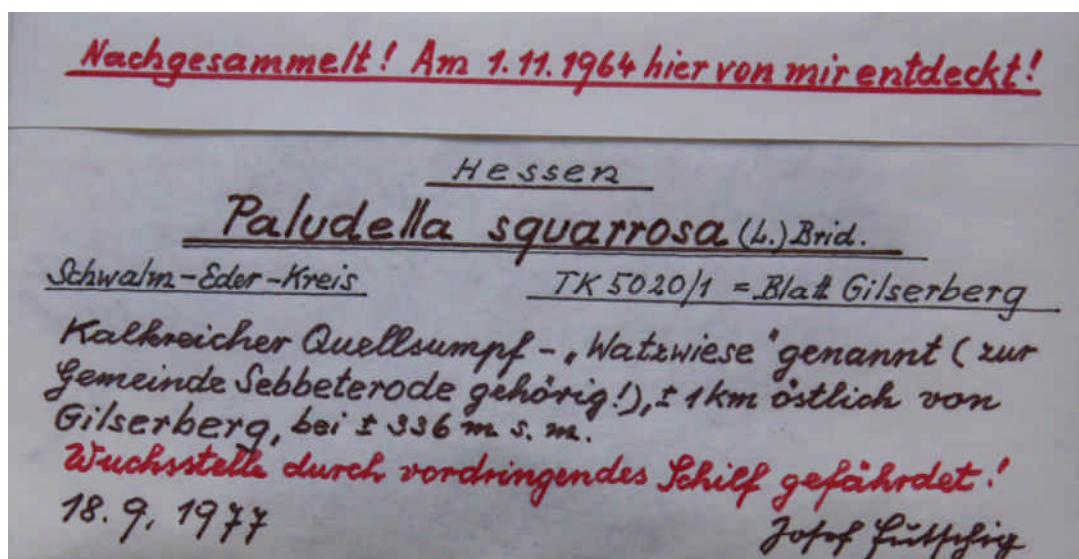 Nachgesammelt! Am 1.11.1964 hier von mir entdeckt!
Hessen
Paludella squarrosa (L.) Brid.
Schwalm-Eder-Kreis TK 5020/1 = Blatt Gilserberg
Kalkreicher Quellsumpf - „Watzwiese" genannt (zur
Gemeinde Sebbeterode gehörig!), ± 1km östlich von
Gilserberg, bei ± 336 m s. m.
Wuchsstelle durch vordringendes Schilf gefährdet!
18.9.1977 Josef Futschig